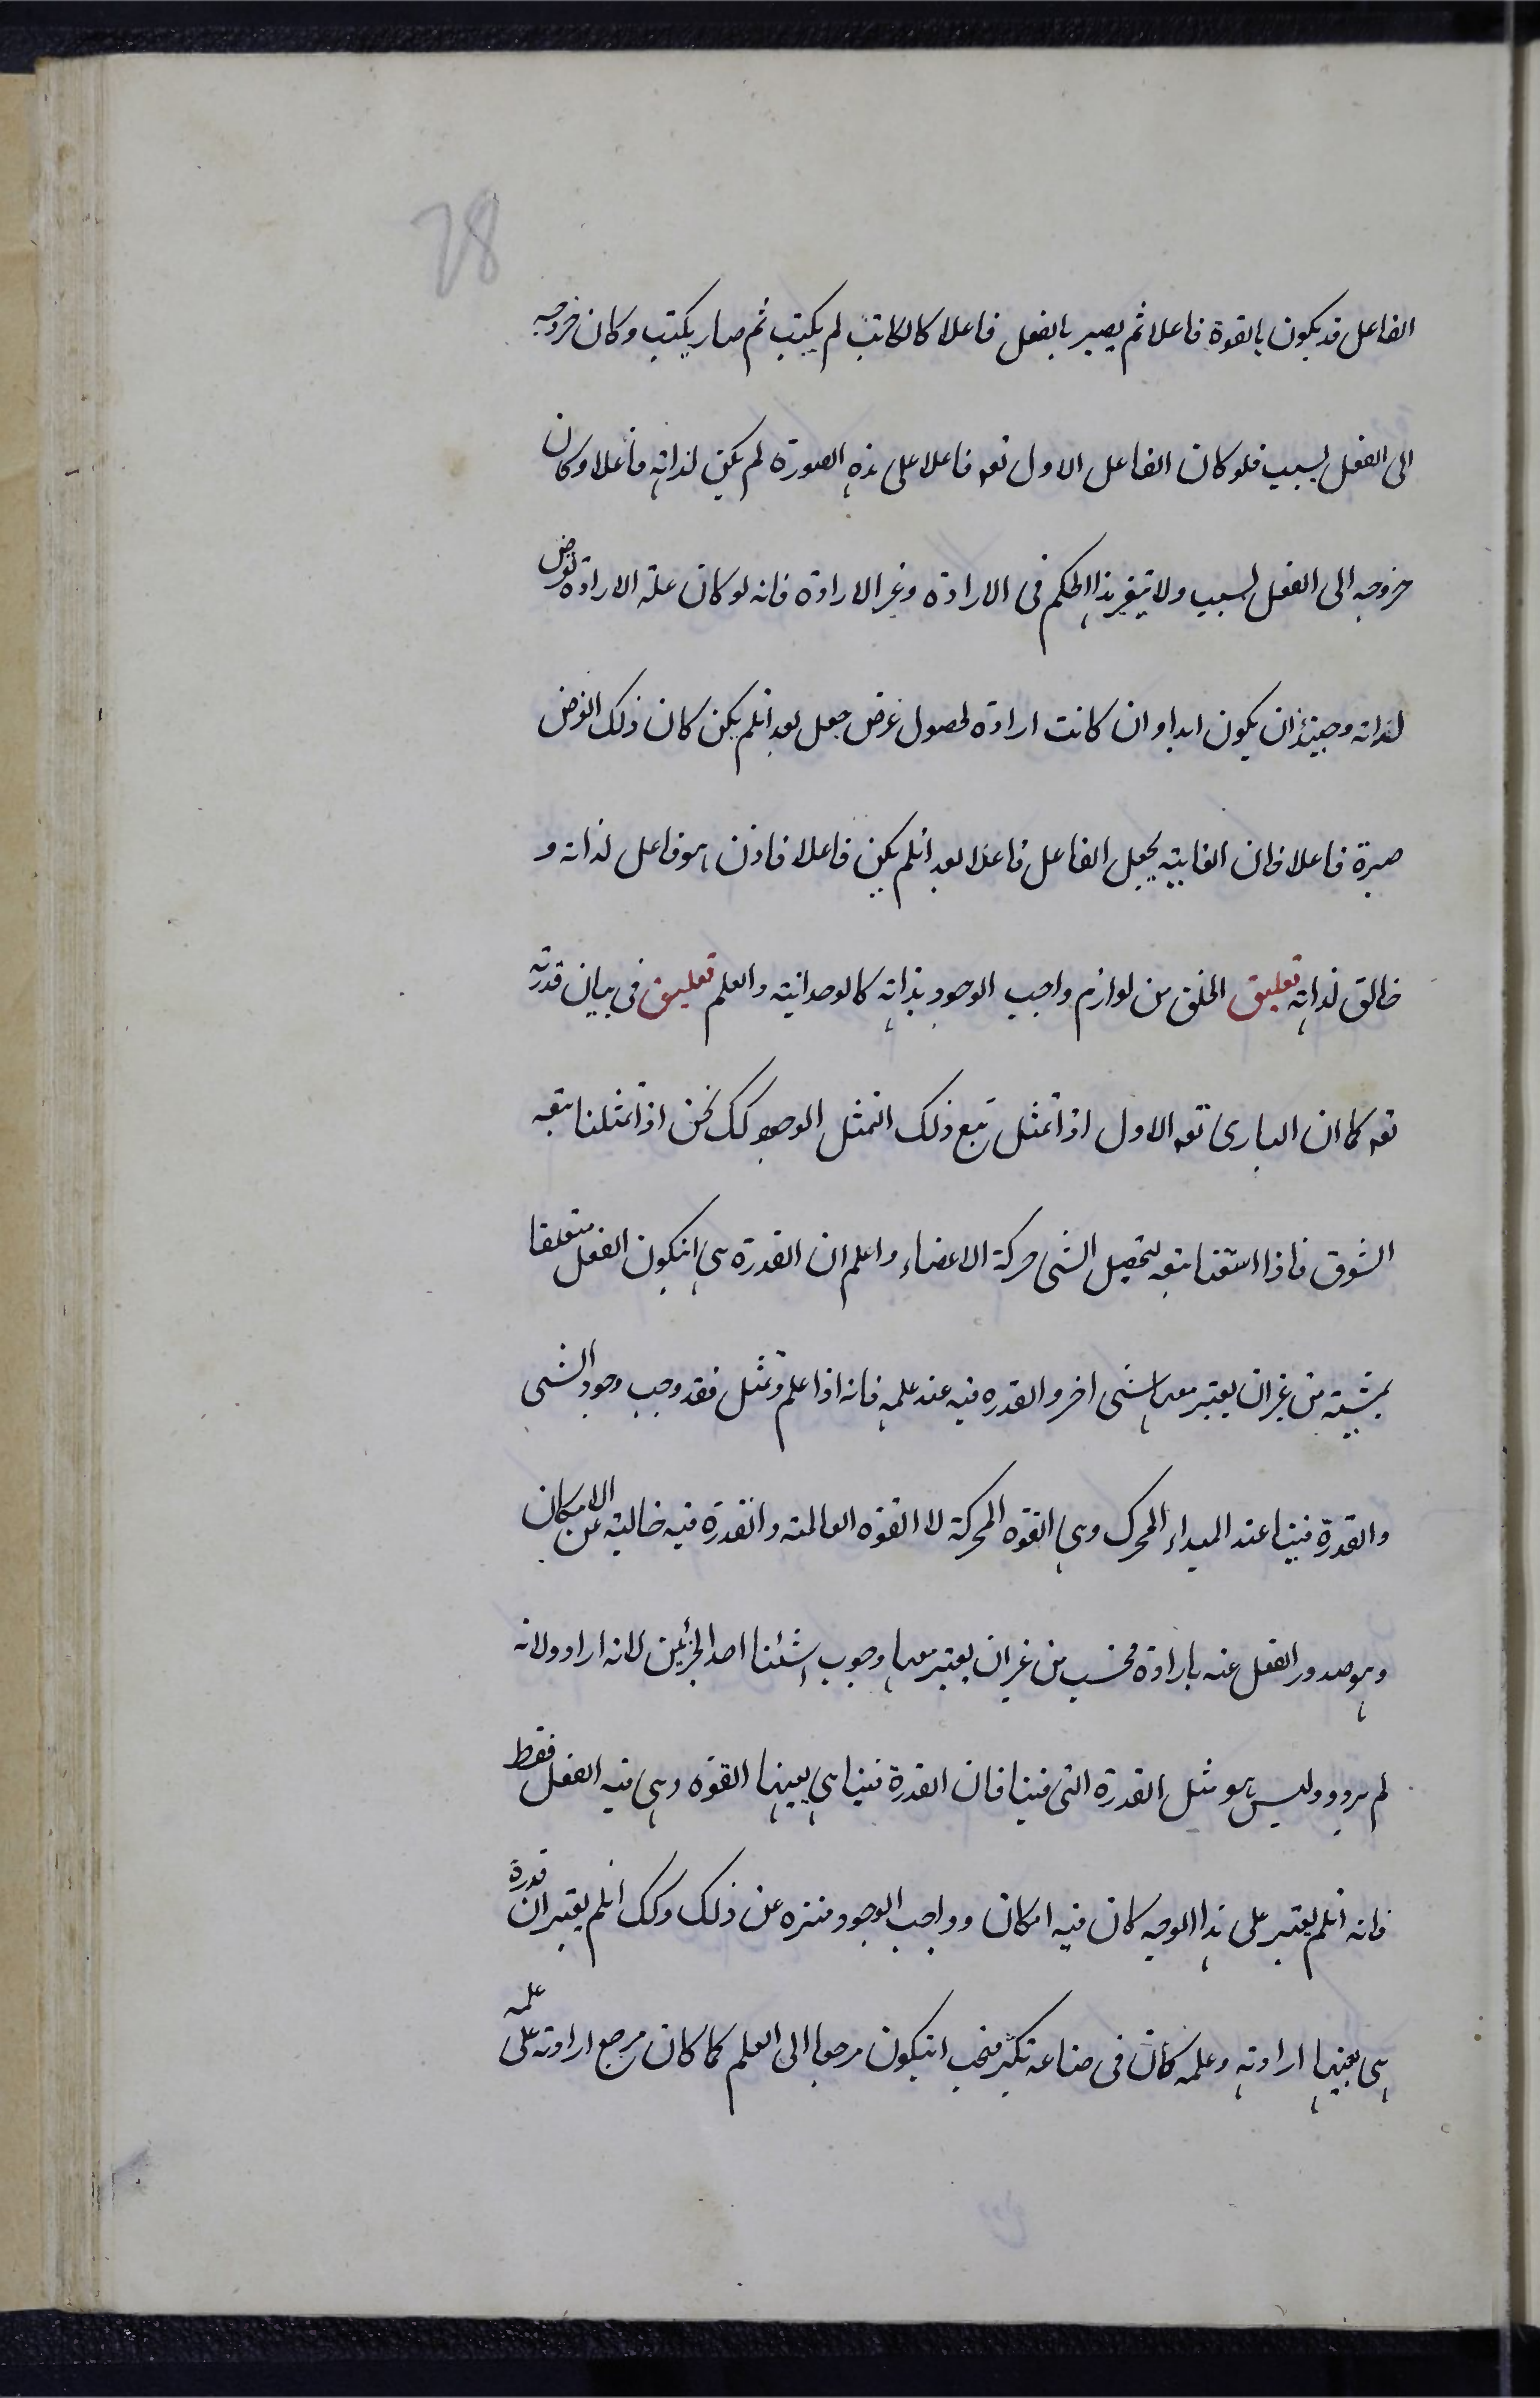 28
الفاعل قد يكون بالقوة فاعلا ثم يصير بالفعل فاعلا كالكاتب لم يكتب ثم صار يكتب وكان خروجه
الى الفعل لسبب فلو كان الفاعل الاول تعه فاعلا على هذه الصورة لم يكن لذاته فاعلا وكان
خروجه الى الفعل لسبب ولا يتغير هذا الحكم فى الارادة وغير الارادة فانه لو كان علة الارادة لغرض
لذاته وحينئذ ان يكون ابدا وان كانت ارادة لحصول غرض جعل بعد انلم يكن كان ذلك الغرض
صيرة فاعلا فان الغاية يجعل الفاعل فاعلا بعد انلم يكن فاعلا فاذن هو فاعل لذاته و
خالق لذاته تعليق الخلق من لوازم واجب الوجود بذاته كالوحدانية والعلم تعليق فى بيان قدرته
تعه كما ان البارى تعه الاول اذا تمثل تبع ذلك التمثل الوجود كك نحن اذا تمثلنا تبعه
الشوق فاذا اشتقنا تبعه لتحصيل الشى حركة الاعضاء واعلم ان القدرة هى انيكون الفعل متعلقا
بمشية من غير ان يعتبر معها شى اخر والقدره فيه عند علمه فانه اذا علم وتمثل فقد وجب وجود الشى
والقدرة فينا عند المبداء المحرك وهى القوه المحركة لا القوه العالمة والقدرة فيه خالية عن الامكان
وهو صدور الفعل عنه بارادة فحسب من غير ان يعتبر معها وجوب استثنا احد الجزئين لانه اراد ولانه
لم يرد وليس هو مثل القدرة التى فينا فان القدرة فينا هى بعينها القوه وهى فيه الفعل فقط
فانه انلم يعتبر على هذا الوجه كان فيه امكان وواجب الوجود منزه عن ذلك وكك انلم يعتبر ان قدرة
هى بعينها ارادته وعلمه كان فى صناعه تكثر فيجب انيكون مرجعها الى العلم كما كان مرجع ارادته على علمه